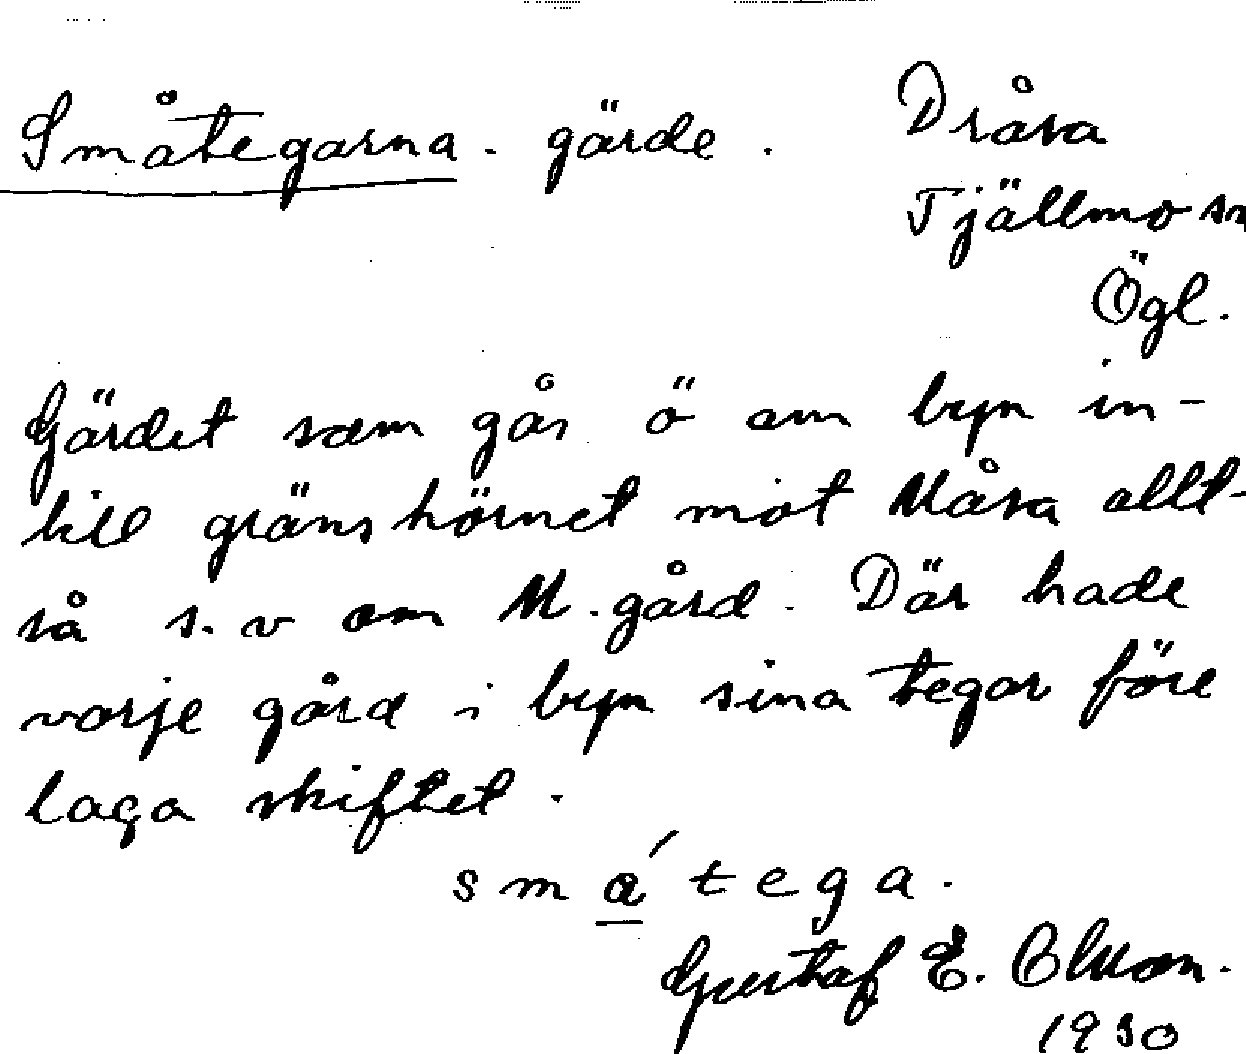 Småtegarna. gärde. Dråsa
Tjällmo sn
Ögl.
Gärdet som går ö om byn in-
till gränshörnet mot Måsa allt-
så s.v om M.gård. Där hade
varje gård i byn sina tegar före
laga skiftet.
smǻtega.
Gustaf E. Olsson.
1930